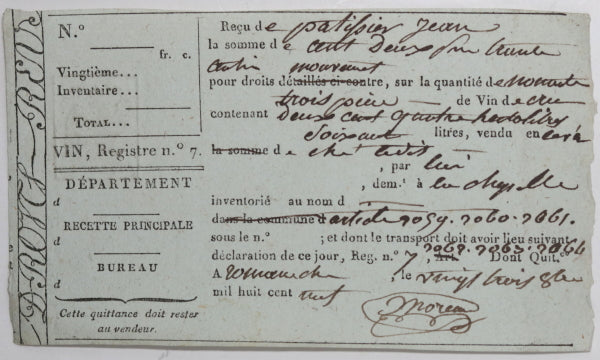 DROITS RÉUN
N.º
fr. c.
Vingtième...
Inventaire...
TOTAL...
VIN, Registre n.º 7.
DÉPARTEMENT
d
RECETTE PRINCIPALE
d
BUREAU
d
Cette quittance doit rester
au vendeur.
Reçu de patissier jean
la somme de cent Deux
pour droits détaillés ci-contre, sur la quantité de
trois piece de Vin de cru
contenant Deux cent quatre hectolitres
Soixante litres, vendu en
la somme de
, par lui
, dem.t à la chapelle
inventorié au nom d
dans la commune d article 2059. 2060. 2061.
sous le n.º ; et dont le transport doit avoir lieu suivant
2062. 2063. 2064
déclaration de ce jour, Reg. n.º 7, Art. Dont Quit.ce
A romaneche, le vingt trois 8bre
mil huit cent neuf
Moreau